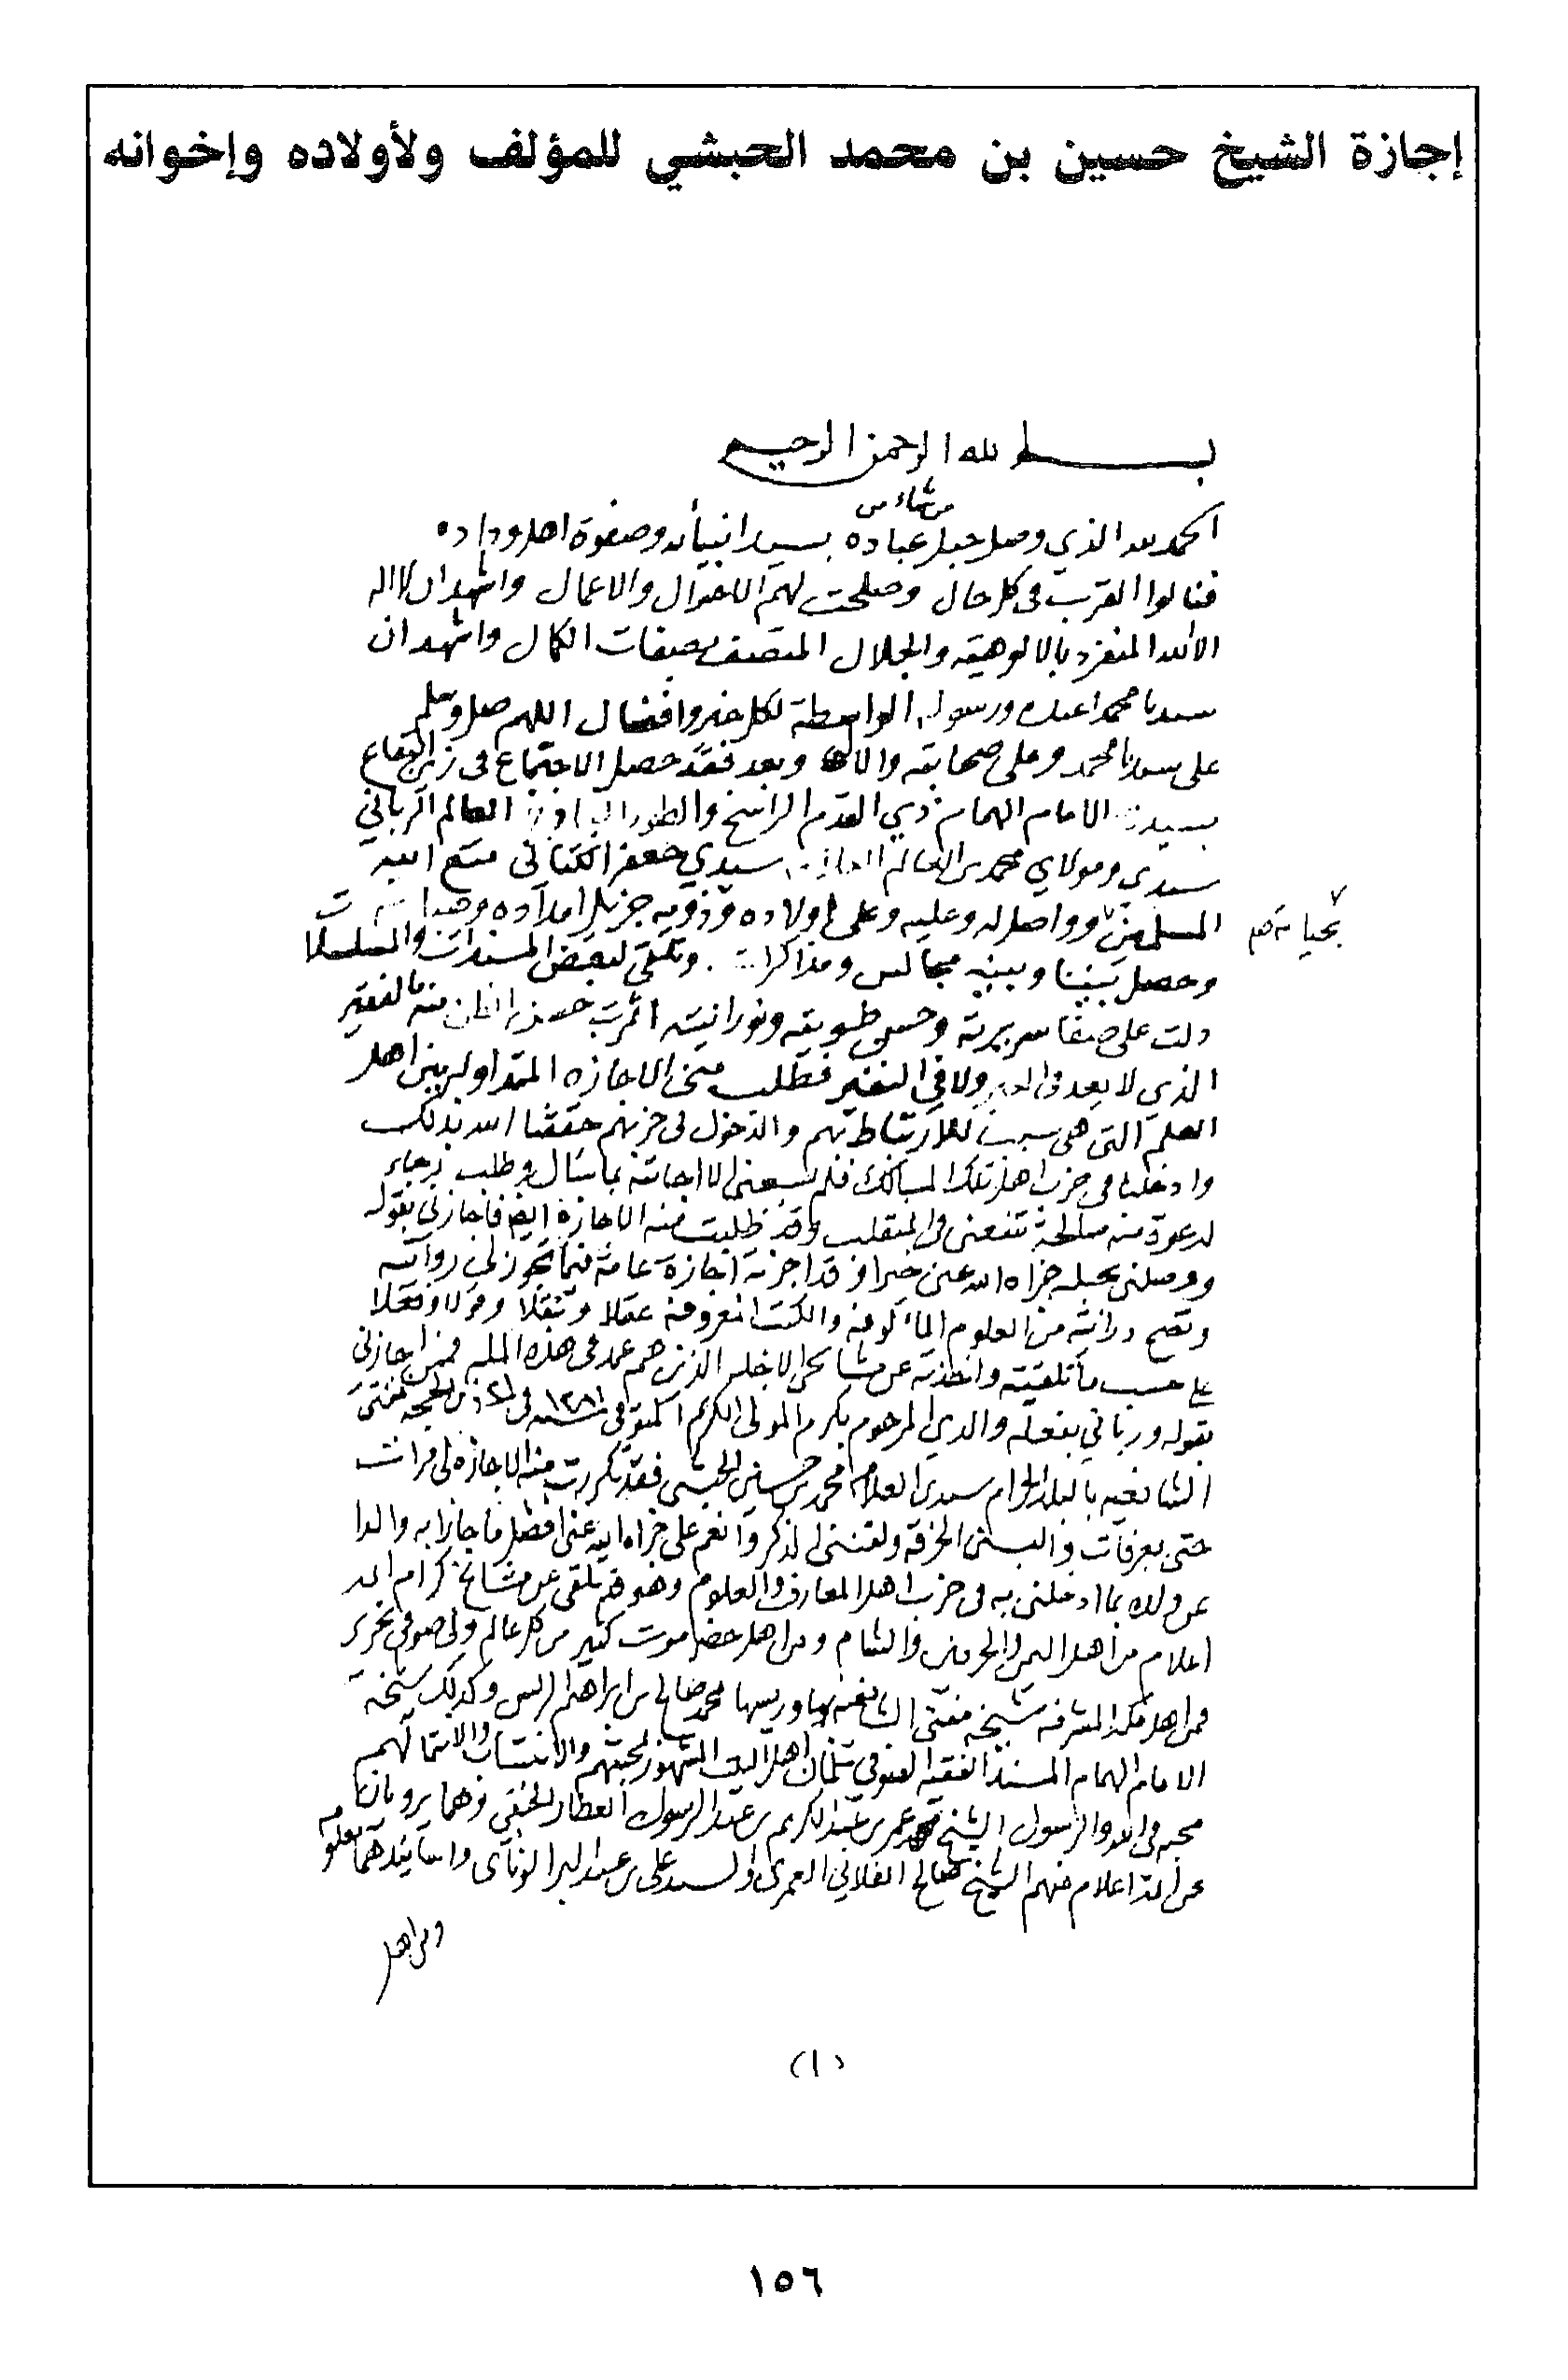 إجازة الشيخ حسين بن محمد الحبشي للمؤلف ولأولاده وإخوانه
بسم الله الرحمن الرحيم
من شاء من
الحمد لله الذي وصل حبل عباده بسيد انبيائه وصفوة اهل وداده
فنالوا القرب في كل حال وصلحت لهم الاحوال والاعمال واشهد ان لا اله
الا الله المنفرد بالالوهية والجلال المتصف بصفات الكمال واشهد ان
سيدنا محمدا عبده ورسوله الواسطة لكل خير وافضال اللهم صل وسلم
على سيدنا محمد وعلى صحابته والآل وبعد فقد حصل الاجتماع في
بسيدنا الامام الهمام ذي القدم الراسخ والطود العالم الرباني
سيدي ومولاي محمد بن العالم سيدي جعفر الكتاني متع الله
المسلمين وواصل له وعليه وعلى اولاده وذويه جزيل امداده
بحياتهم
وحصل بيننا وبينه مجالس ومذاكرات وتلقي لبعض المسندات والمسلسلات
دلت على صفا سريرته وحسن طويته ونورانيته اثمرت حسن الظن منه بالفقير
الذي لا يعد في العير ولا في النفير فطلب مني الاجازه المتداوله بين اهل
العلم التي هي سبب للارتباط بهم والدخول في حزبهم حققنا الله بذلك
وادخلنا في حزب اهل تلك المسالك فلم يسعني الا اجابته بما سأل وطلب رجاء
لدعوة منه صالحة تنفعني في المنقلب وقد طلبت منه الاجازة ايضا فاجازني بقوله
ووصلني بحبله جزاه الله عني خيرا وقد اجزته اجازة عامة فيما تجوز لي روايته
وتصح درايته من العلوم المألوفه والكتب المعروفه عقلا ونقلا وقولا وفعلا
على حسب ما تلقيته واخذته عن مشايخي الاجله الذين هم عمد في هذه المله فمن اجازني
بقوله ورباني بفعله والدي المرحوم بكرم المولى الكريم المتوفى سنه ١٢٨١ في ٢١ ذي الحجه مفتي
الشافعيه بالبلد الحرام سيدي العلامه محمد بن حسين الحبشي فقد تكررت منه الاجازه لي مرات
حتى بعرفات والبسني الخرقه ولقنني الذكر وانعم علي جزاه الله عني افضل ما جازا به والدا
عن ولده بما ادخلني به في حزب اهل المعارف والعلوم وهو قد تلقى عن مشائخ كرام
اعلام من اهل اليمن والحرمين والشام ومن اهل حضرموت كثير من كل عالم وصوفي نحرير
فمن اهل مكة المشرفه شيخه مفتي الشافعيه بها ورئيسها محمد صالح بن ابراهيم الريس وكذلك شيخه
الامام الهمام المسند الفقيه الصوفي سلمان اهل البيت المشهور لمحبتهم والانتساب والانتما لهم
محبه في الله والرسول الشيخ عمر بن عبد الكريم بن عبد الرسول العطار الحنفي وهما يرويان
عن ائمة اعلام منهم الشيخ صالح الفلاني العمري والسيد علي بن عبد البر الونائي واسانيدهما معلومه
ومن اهل
(١)
١٥٦